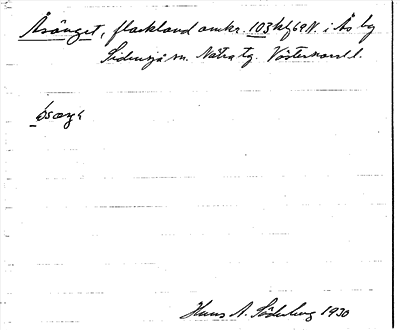 Åsänget, flackland omkr. 103 kbf 69 N. i Ås by
Sidensjö sn. Nätra tg. Västernorrl. l.
Hans A. Söderberg 1930